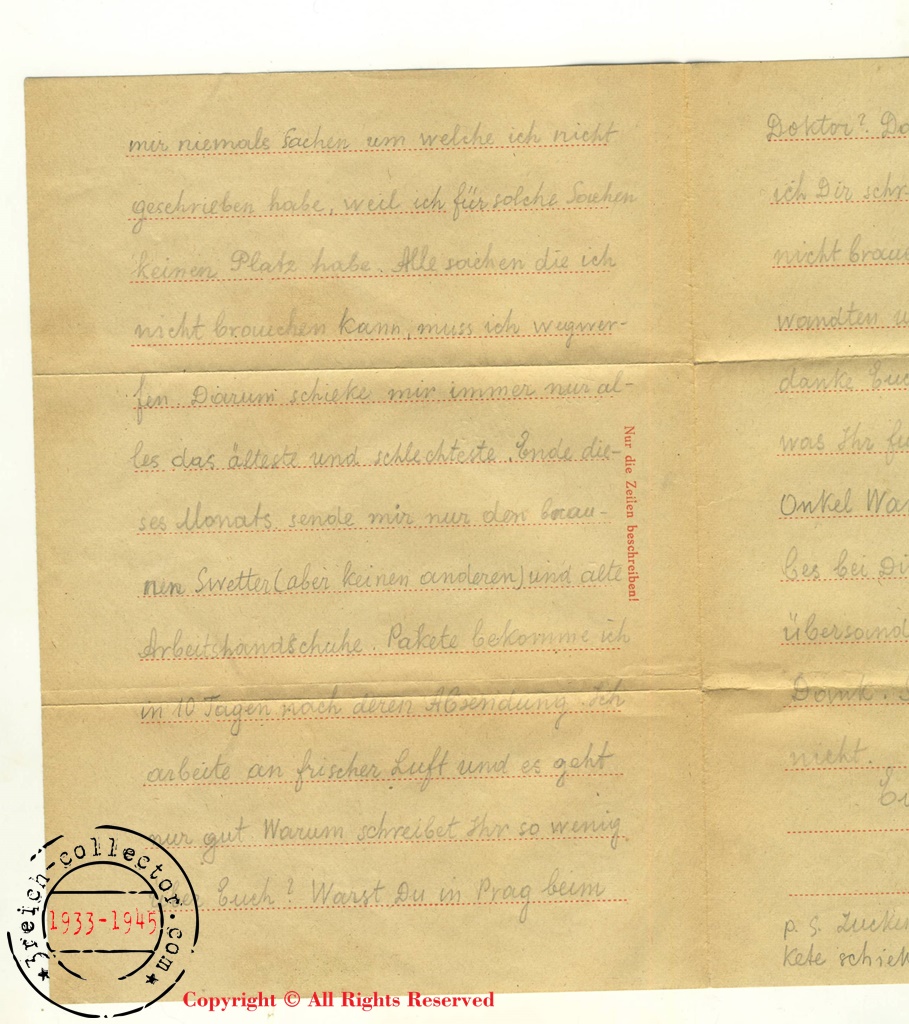 mir niemals Sachen um welche ich nicht
geschrieben habe, weil ich für solche Sachen
keinen Platz habe. Alle sachen die ich
nicht brauchen kann, muss ich wegwer-
fen. Darum schieke mir immer nur al-
les das älteste und schlechteste. Ende die-
ses Monats sende mir nur den brau-
nen Swetter (aber keinen anderen) und alte
Arbeitshandschuhe. Pakete bekomme ich
in 10 Tagen nach deren Absendung. Ich
arbeite an frischer Luft und es geht
mir gut. Warum schreibet Ihr so wenig
über Euch? Warst Du in Prag beim
Nur die Zeilen beschreiben!
Doktor? Da
ich Dir schr
nicht brauc
wandten u
danke Euc
was Ihr fü
Onkel War
bes bei Di
übersand
Dank.
nicht.
Eu
p. S. Zucker
kete schiek
3reich-collector.com
1933-1945
Copyright © All Rights Reserved